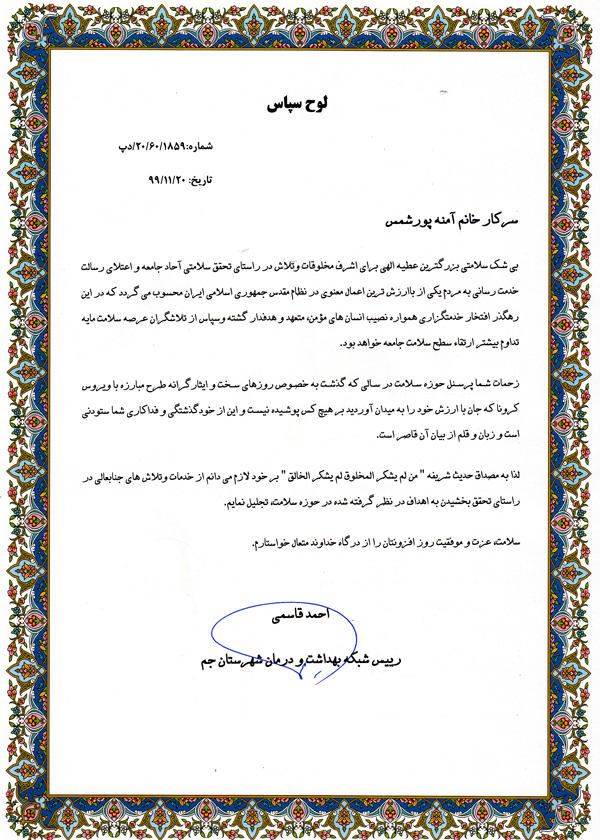 لوح سپاس
شماره:۲۰/۶۰/۱۸۵۹/دپ
تاریخ: ۹۹/۱۱/۲۰
سرکار خانم آمنه پورشمس
بی شک سلامتی بزرگترین عطیه الهی برای اشرف مخلوقات وتلاش در راستای تحقق سلامتی آحاد جامعه و اعتلای رسالت
خدمت رسانی به مردم یکی از باارزش ترین اعمال معنوی در نظام مقدس جمهوری اسلامی ایران محسوب می گردد که در این
رهگذر افتخار خدمتگزاری همواره نصیب انسان های مؤمن، متعهد و هدفدار گشته وسپاس از تلاشگران عرصه سلامت مایه
تداوم بیشتر ارتقاء سطح سلامت جامعه خواهد بود.
زحمات شما پرسنل حوزه سلامت در سالی که گذشت به خصوص روزهای سخت و ایثارگرانه طرح مبارزه با ویروس
کرونا که جان با ارزش خود را به میدان آوردید بر هیچ کس پوشیده نیست و این از خودگذشتگی و فداکاری شما ستودنی
است و زبان و قلم از بیان آن قاصر است.
لذا به مصداق حدیث شریفه " من لم یشکر المخلوق لم یشکر الخالق " بر خود لازم می دانم از خدمات وتلاش های جنابعالی در
راستای تحقق بخشیدن به اهداف در نظر گرفته شده در حوزه سلامت، تجلیل نمایم.
سلامت، عزت و موفقیت روز افزونتان را از درگاه خداوند متعال خواستارم.
احمد قاسمی
رییس شبکه بهداشت و درمان شهرستان جم